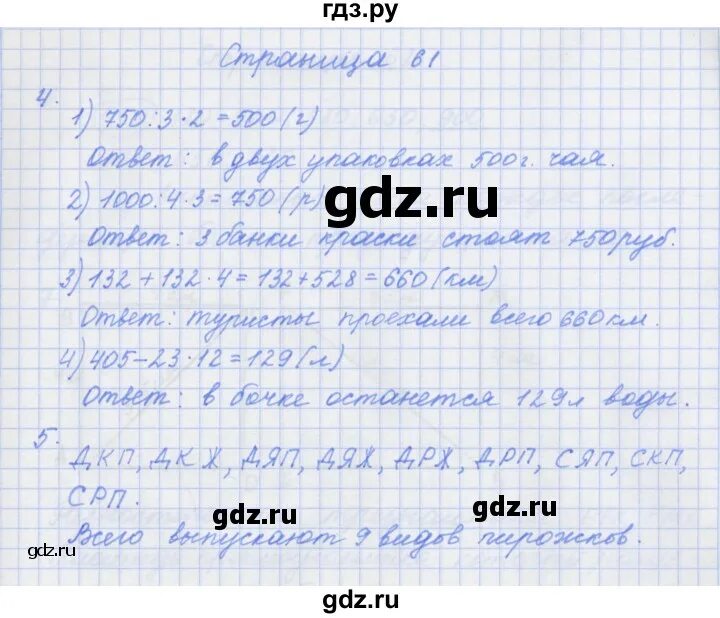 гдз.ру
Страница 61
4.
1) 750:3·2=500(г)
Ответ: в двух упаковках 500г. чая.
2) 1000:4·3=750(р)
gdz.ru
Ответ: 3 банки краски стоят 750руб.
3) 132+132·4=132+528=660(км)
Ответ: туристы проехали всего 660км.
4) 405-23·12=129(л)
Ответ: в бочке останется 129л воды.
5.
ДКП, ДКЖ, ДЯП, ДЯЖ, ДРЖ, ДРП, СЯП, СКП,
СРП.
gdz.ru
gdz.ru
Всего выпускают 9 видов пирожков.
gdz.ru
gdz.ru